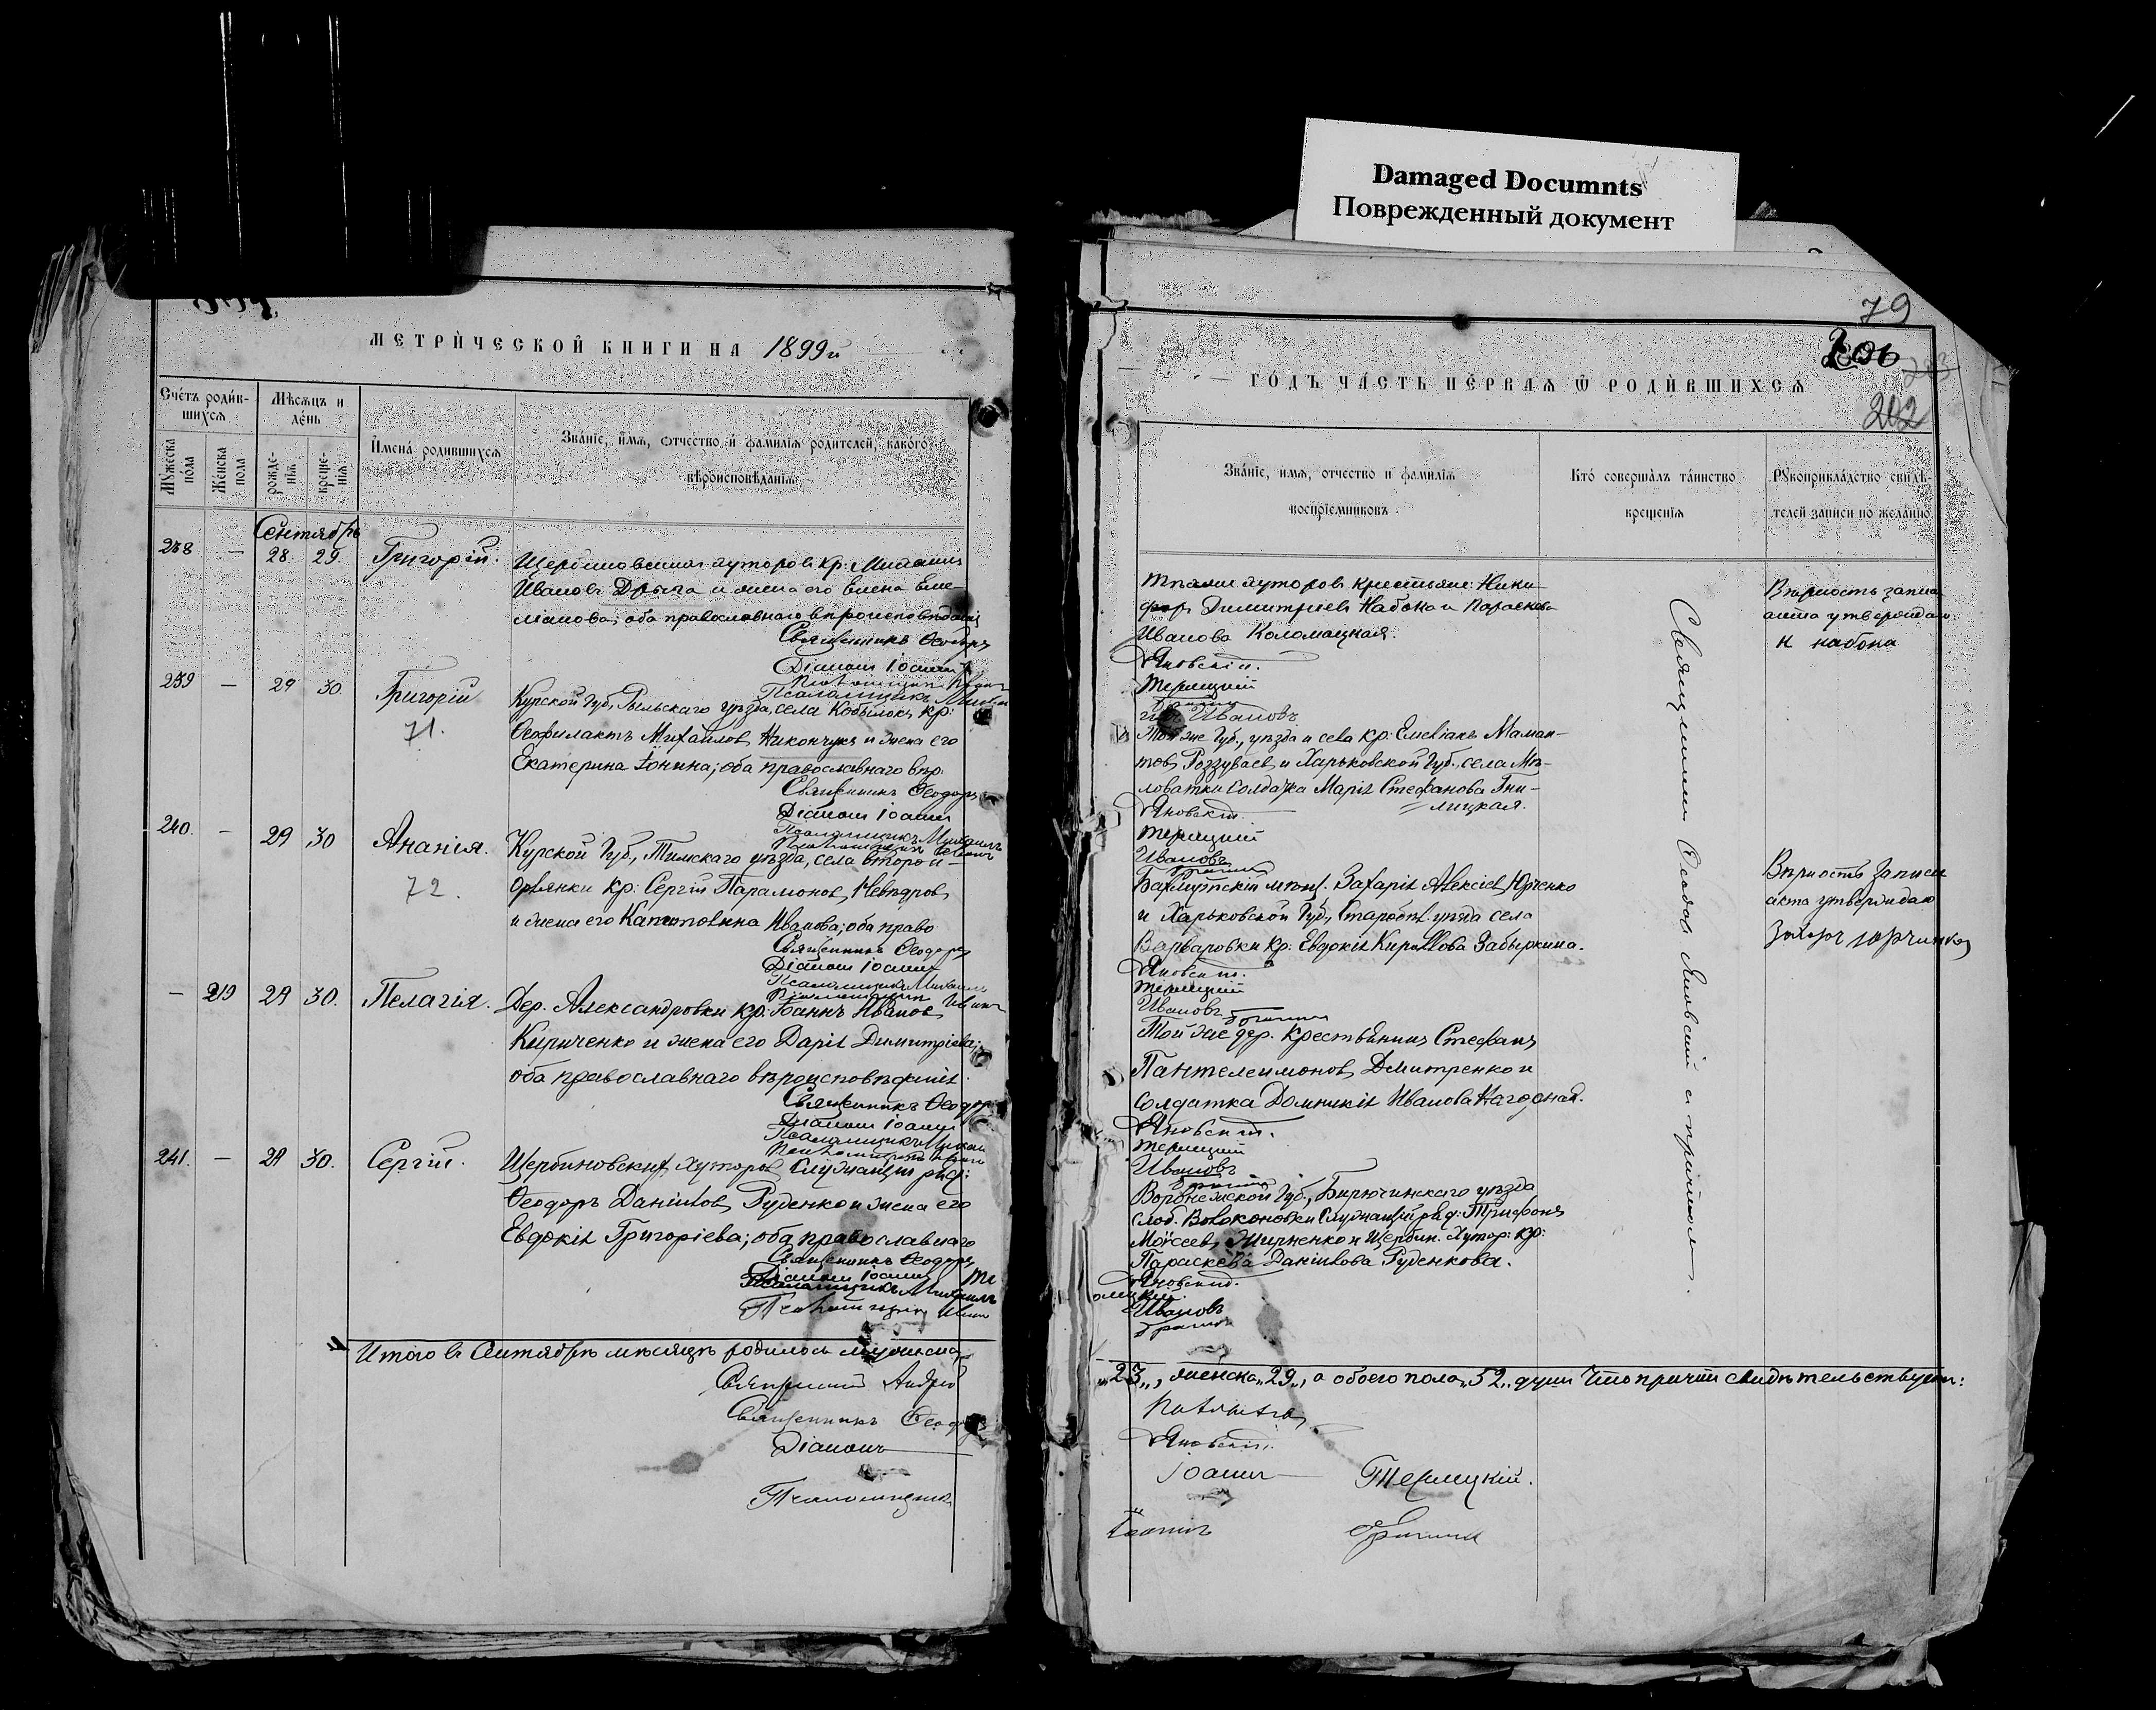 Damaged Documnts
Поврежденный документ
МЕТРИЧЕСКОЙ КНИГИ НА 1899й
Счетъ родив-
шихся
Мѣсяцъ и
день
Мужеска
пола
Женска
пола
рожде-
нія
креще-
нія
Имена родившихся
Званіе, имя, отчество и фамилія родителей, какого
вѣроисповѣданія
Сентябрь
238 — 28. 29. Григорій.
Щербиновскихъ хуторовъ кр: Михаилъ
Ивановъ Дрыга и жена его Елена Еме-
ліанова; оба православнаго вѣроисповѣданія
Священникъ Ѳеодоръ
Діаконъ Іоаннъ
239 — 29 30. Григорій
71.
Курской Губ., Рыльскаго уѣзда, села Кобылокъ, кр:
Ѳеофилактъ Михайловъ Никончукъ и жена его
Екатерина Іонина; оба православнаго вѣр.
Священникъ Ѳеодоръ
Діаконъ Іоаннъ
Псаломщикъ Михаилъ
240. — 29 30 Ананія.
72.
Курской Губ., Тимскаго уѣзда, села второй
орлянки кр: Сергій Парамоновъ
и жена его Капитолина Иванова; оба право
Священникъ Ѳеодоръ
Діаконъ Іоаннъ
Псаломщикъ Михаилъ
— 219 29 30. Пелагія.
Дер. Александровки кр: Іоаннъ Ивановъ
Кириченко и жена его Дарія Димитріева;
оба православнаго вѣроисповѣданія.
Священникъ Ѳеодоръ
Діаконъ Іоаннъ
Псаломщикъ Михаил
241. — 29 30. Сергій.
Щербиновскихъ Хуторовъ Служащій ряд:
Ѳеодоръ Даніиловъ Руденко и жена его
Евдокія Григоріева; оба православнаго
Священникъ Ѳеодоръ
Діаконъ Іоаннъ
Псаломщикъ Михаилъ
Псаломщикъ
Итого въ Сентябрѣ мѣсяцѣ родилось мужеска
Священникъ Андрей
Священникъ Ѳеодоръ
Діаконъ
Псаломщикъ
79
206
202
ГОДЪ ЧАСТЬ ПЕРВАЯ Ѿ РОДИВШИХСЯ
Званіе, имя, отчество и фамилія
воспріемниковъ
Кто совершалъ таинство
крещенія
Рукоприкладство свидѣ-
телей записи по желанію
хуторовъ крестьяне: Ники-
форъ Димитріевъ Набока и Параскева
Иванова Коломацкая.
Яновскій.
Терлецкій
Ивановъ
Той же Губ., уѣзда и села кр: Емеліанъ Маман-
товъ Роззуваевъ и Харьковской Губ., села Мѣ-
ловатки солдатка Марія Стефанова Гни-
лицкая.
Яновскій.
Терлецкій
Ивановъ
Бахмутскій мѣщ. Захарія Алексіевъ Юрченко
и Харьковской Губ., Старобѣл. уѣзда села
Варваровки кр: Евдокія Кириллова Забыркина.
Яновскій.
Терлецкій
Ивановъ
Той же дер. крестьянинъ Стефанъ
Пантелеимоновъ Дмитренко и
солдатка Домникія Иванова Нагорная.
Яновскій.
Терлецкій
Ивановъ
Воронежской Губ., Бирюченскаго уѣзда
слоб. Волоконовки Служащій ряд: Трифонъ
Моисеевъ Жирненко и Щербин. Хутор: кр:
Параскева Даніилова Руденкова.
Яновскій.
Ивановъ
„23„, женска„29„, а обоего пола„52„ души Что причтъ свидѣтельствуетъ:
Яновскій.
Іоаннъ Терлецкій.
Іоаннъ
Священникъ Ѳеодоръ Яновскій съ причтомъ.
Вѣрность записи
акта утверждаю:
Н набока
Вѣрность Записи
акта утверждаю
Захаръ юрченко